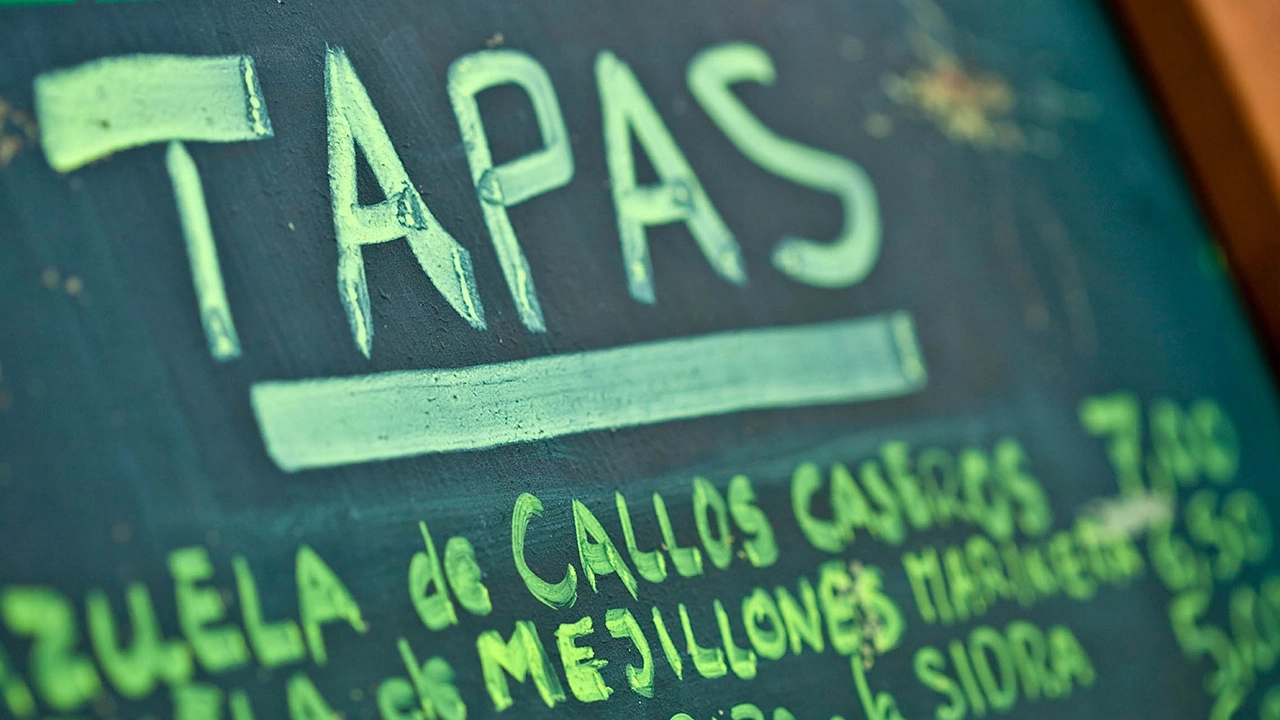 TAPAS
ZUELA de CALLOS CASEROS 7,00
LA de MEJILLONES MARINERA 6,50
a la SIDRA 5,00